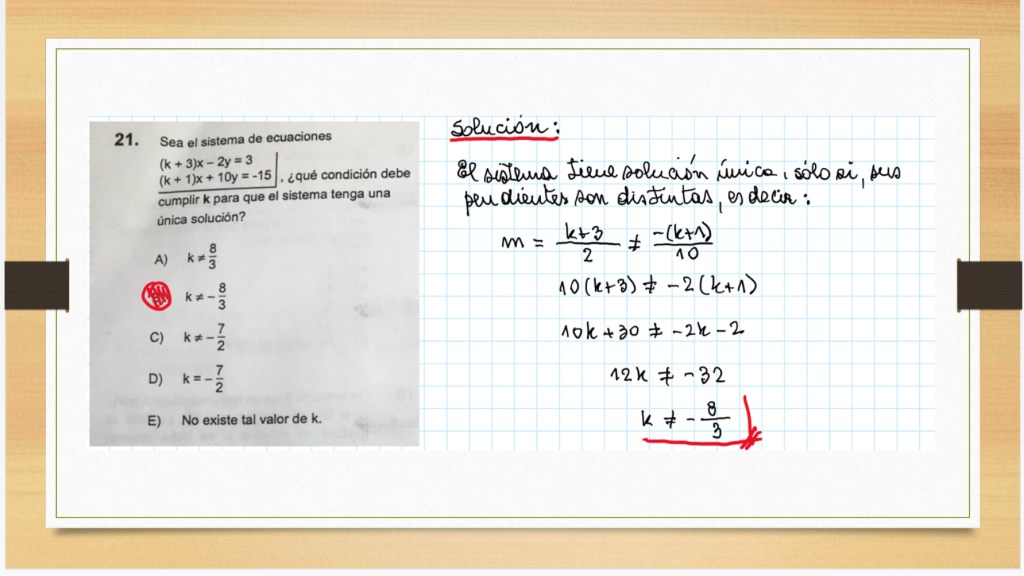 21. Sea el sistema de ecuaciones
(k + 3)x – 2y = 3
(k + 1)x + 10y = -15 , ¿qué condición debe
cumplir k para que el sistema tenga una
única solución?
A) k ≠ 8/3
k ≠ – 8/3
C) k ≠ – 7/2
D) k = – 7/2
E) No existe tal valor de k.
Solución:
El sistema tiene solución única, sólo si, sus
pendientes son distintas, es decir:
m = k+3/2 ≠ -(k+1)/10
10(k+3) ≠ -2(k+1)
10k+30 ≠ -2k-2
12k ≠ -32
k ≠ - 8/3